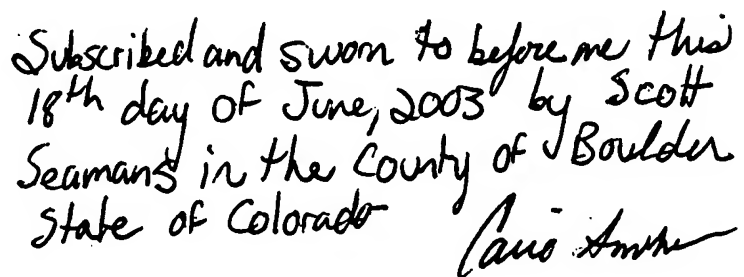 Subscribed and sworn to before me this
18th day of June, 2003 by Scott
Seamans in the County of Boulder
State of Colorado